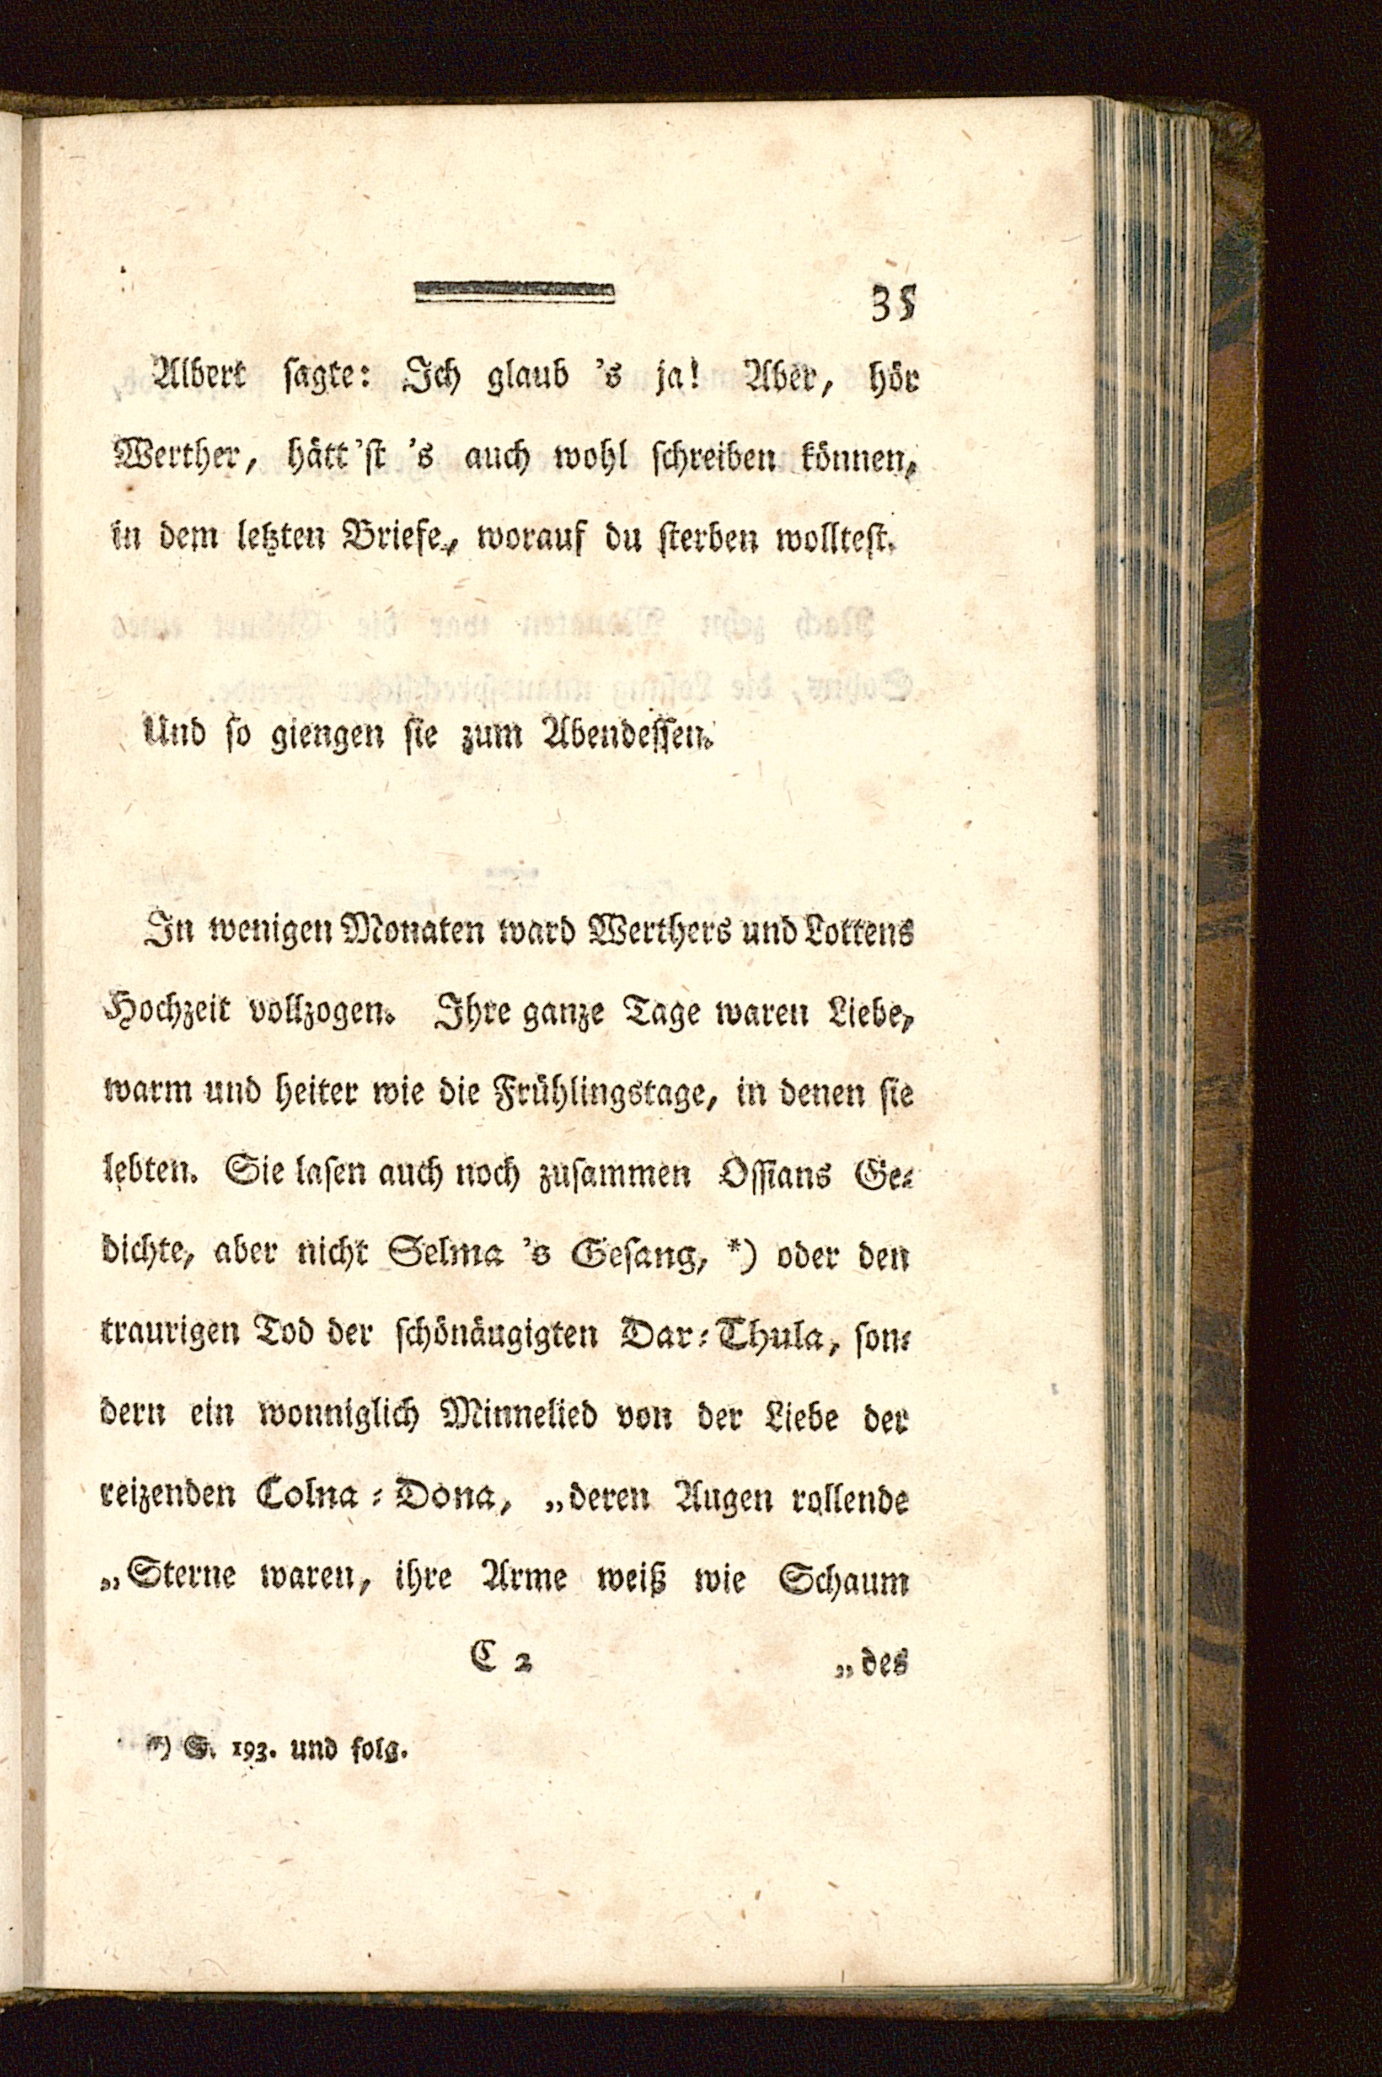 35
Albert sagte: Ich glaub 's ja! Aber, hör
Werther, hätt'st 's auch wohl schreiben können,
in dem letzten Briefe, worauf du sterben wolltest.
Und so giengen sie zum Abendessen.
In wenigen Monaten ward Werthers und Lottens
Hochzeit vollzogen. Ihre ganze Tage waren Liebe,
warm und heiter wie die Frühlingstage, in denen sie
lebten. Sie lasen auch noch zusammen Ossians Ge-
dichte, aber nicht Selma 's Gesang, *) oder den
traurigen Tod der schönäugigten Dar-Thula, son-
dern ein wonniglich Minnelied von der Liebe der
reizenden Colna-Dona, „deren Augen rollende
„Sterne waren, ihre Arme weiß wie Schaum
C 2 „des
*) S. 193. und folg.